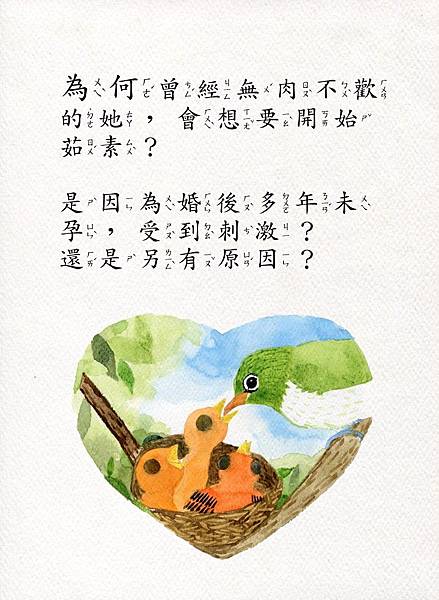 為何曾經無肉不歡
的她，會想要開始
茹素？
是因為婚後多年未
孕，受到刺激？
還是另有原因？